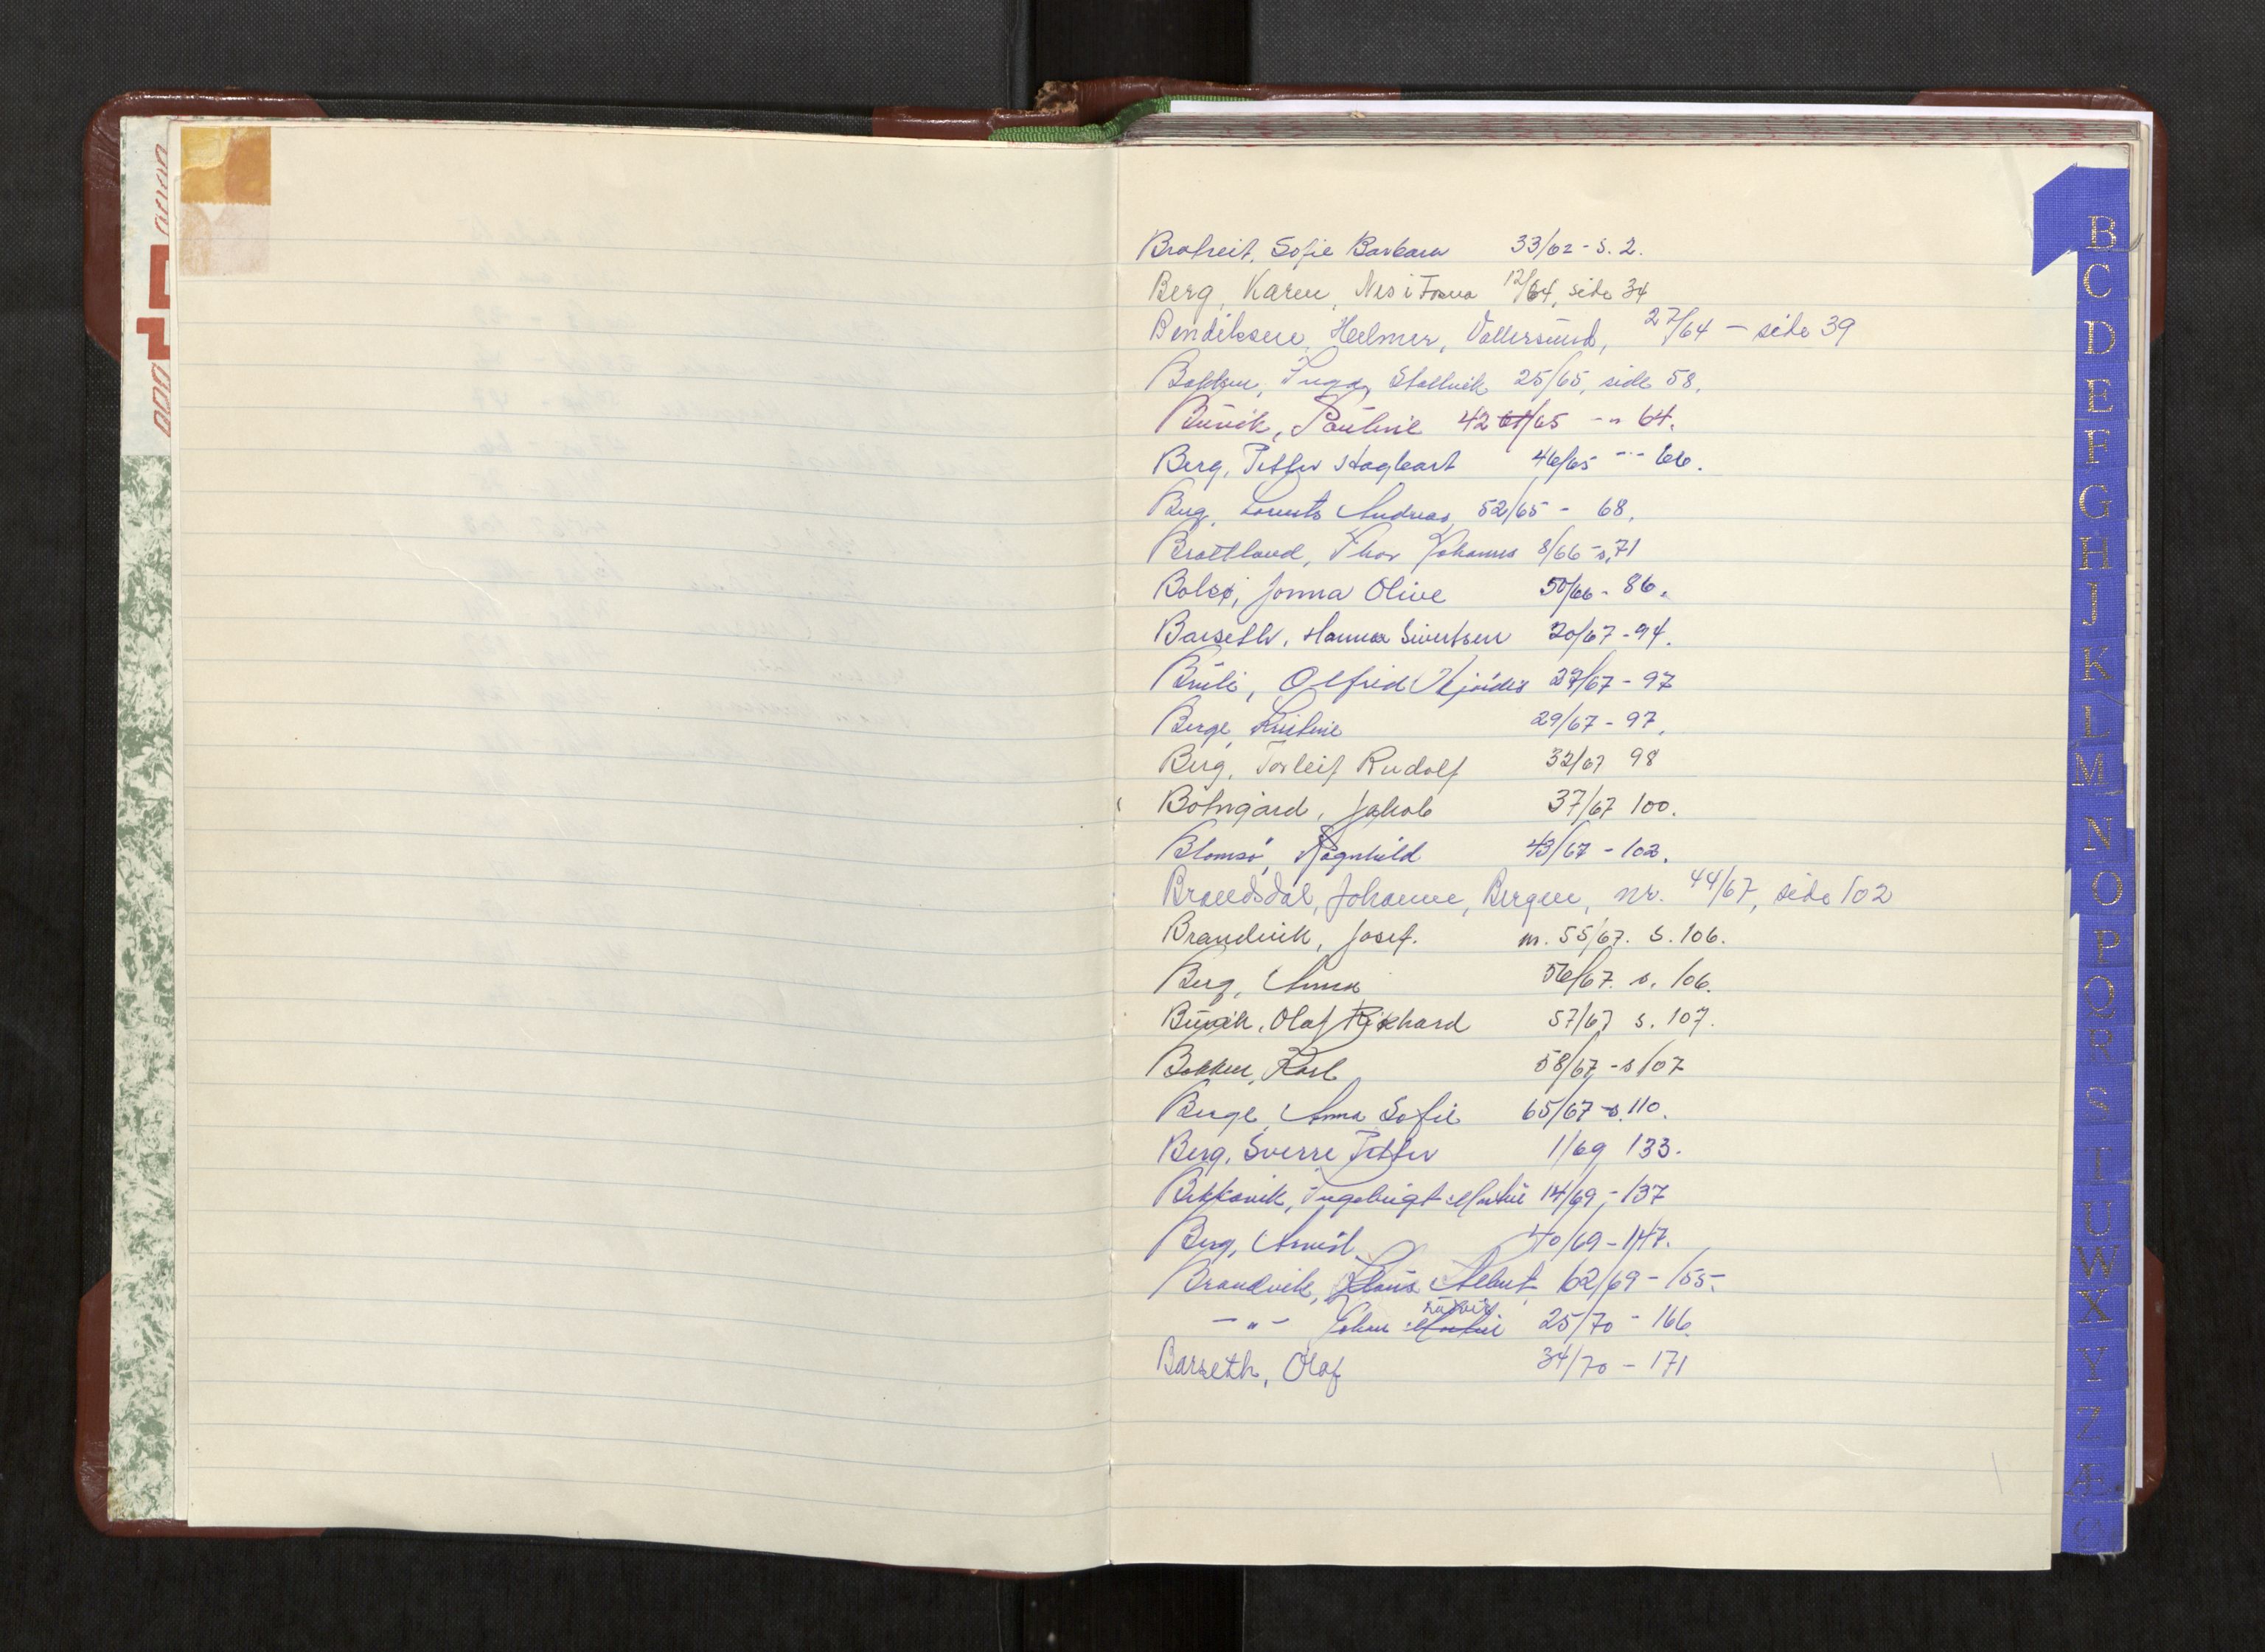 Brotreit, Sofie Barbara 33/62 - s. 2.
Berg, Karen, Nes i Fosna 12/64, side 34
Bendiksen, Helmer, Vallersund, 27/64 - side 39
Bakken, Inga, Stallvik 25/65, side 58.
Buvik, Pauline 42/65 - " 64.
Berg, Petter Hagbart 46/65 --- 66.
Berg, Lorents Andreas, 52/65 - 68.
Brattland, Thor Johannes 8/66 - s. 71
Bolsø, Jonna Olive 50/66 - 86.
Barseth, Hanna Sivertsen 20/67 - 94.
Olfrid Hjördis 27/67 - 97
Berge, Kristine 29/67 - 97.
Berg, Torleif Rudolf 32/67 98
Botngård, Jakob 37/67 100.
Blomsø, Ragnhild 43/67 - 102.
Brandsdal, Johanne, Bergen, nr. 44/67, side 102
Brandvik, Josef. nr. 55/67. s. 106.
Berg, Anna 56/67. s. 106.
Buvik, Olaf Rikhard 57/67 s. 107.
Bakken, Karl 58/67 - s 107
Berge, Anna Sofie 65/67 - s. 110.
Berg, Sverre Petter 1/69 133.
Bekkavik, Ingebrigt Martin 14/69 - 137
Berg, Arnist 40/69 - 147.
Brandvik, Klaus Albert 62/69 - 155.
- " - Johan Martin 25/70 - 166.
Barseth, Olaf 34/70 - 171
B
C
D
E
F
G
H
I
K
L
M
N
O
P
Q
R
S
T
U
W
X
Y
Z
Æ
Ø